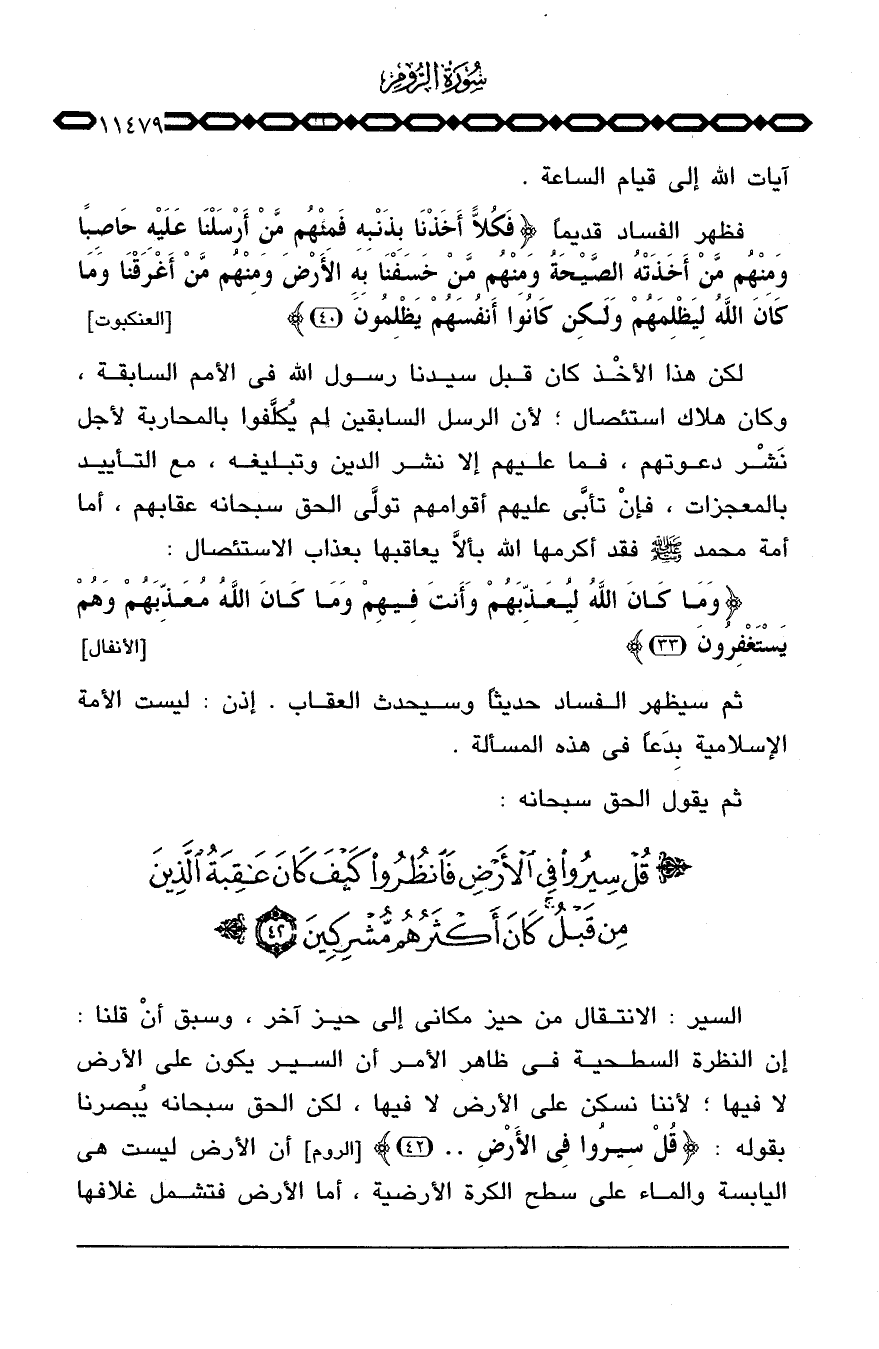 سُورَةُ الرُّومِ
١١٤٧٩
آيات الله إلى قيام الساعة .
فظهر الفساد قديماً ﴿ فَكُلاًّ أَخَذْنَا بِذَنْبِهِ فَمِنْهُم مَّنْ أَرْسَلْنَا عَلَيْهِ حَاصِبًا
وَمِنْهُم مَّنْ أَخَذَتْهُ الصَّيْحَةُ وَمِنْهُم مَّنْ خَسَفْنَا بِهِ الأَرْضَ وَمِنْهُم مَّنْ أَغْرَقْنَا وَمَا
كَانَ اللَّهُ لِيَظْلِمَهُمْ وَلَـكِن كَانُوا أَنفُسَهُمْ يَظْلِمُونَ (٤٠) ﴾ [العنكبوت]
لكن هذا الأخْذ كان قبل سيدنا رسول الله فى الأمم السابقة ،
وكان هلاك استئصال ؛ لأن الرسل السابقين لم يُكلَّفوا بالمحاربة لأجل
نَشْر دعوتهم ، فما عليهم إلا نشر الدين وتبليغه ، مع التأييد
بالمعجزات ، فإنْ تأبَّى عليهم أقوامهم تولَّى الحق سبحانه عقابهم ، أما
أمة محمد ﷺ فقد أكرمها الله بألاَّ يعاقبها بعذاب الاستئصال :
﴿ وَمَا كَانَ اللَّهُ لِيُعَذِّبَهُمْ وَأَنتَ فِيهِمْ وَمَا كَانَ اللَّهُ مُعَذِّبَهُمْ وَهُمْ
يَسْتَغْفِرُونَ (٣٣) ﴾ [الأنفال]
ثم سيظهر الفساد حديثاً وسيحدث العقاب . إذن : ليست الأمة
الإسلامية بِدَعاً فى هذه المسألة .
ثم يقول الحق سبحانه :
﴿ قُلْ سِيرُوا۟ فِى ٱلْأَرْضِ فَٱنظُرُوا۟ كَيْفَ كَانَ عَـٰقِبَةُ ٱلَّذِينَ
مِن قَبْلُ ۚ كَانَ أَكْثَرُهُم مُّشْرِكِينَ (٤٢) ﴾
السير : الانتقال من حيز مكانى إلى حيز آخر ، وسبق أنْ قلنا :
إن النظرة السطحية فى ظاهر الأمر أن السير يكون على الأرض
لا فيها ؛ لأننا نسكن على الأرض لا فيها ، لكن الحق سبحانه يُبصرنا
بقوله : ﴿ قُلْ سِيرُوا فِى الأَرْضِ .. (٤٢) ﴾ [الروم] أن الأرض ليست هى
اليابسة والماء على سطح الكرة الأرضية ، أما الأرض فتشمل غلافها